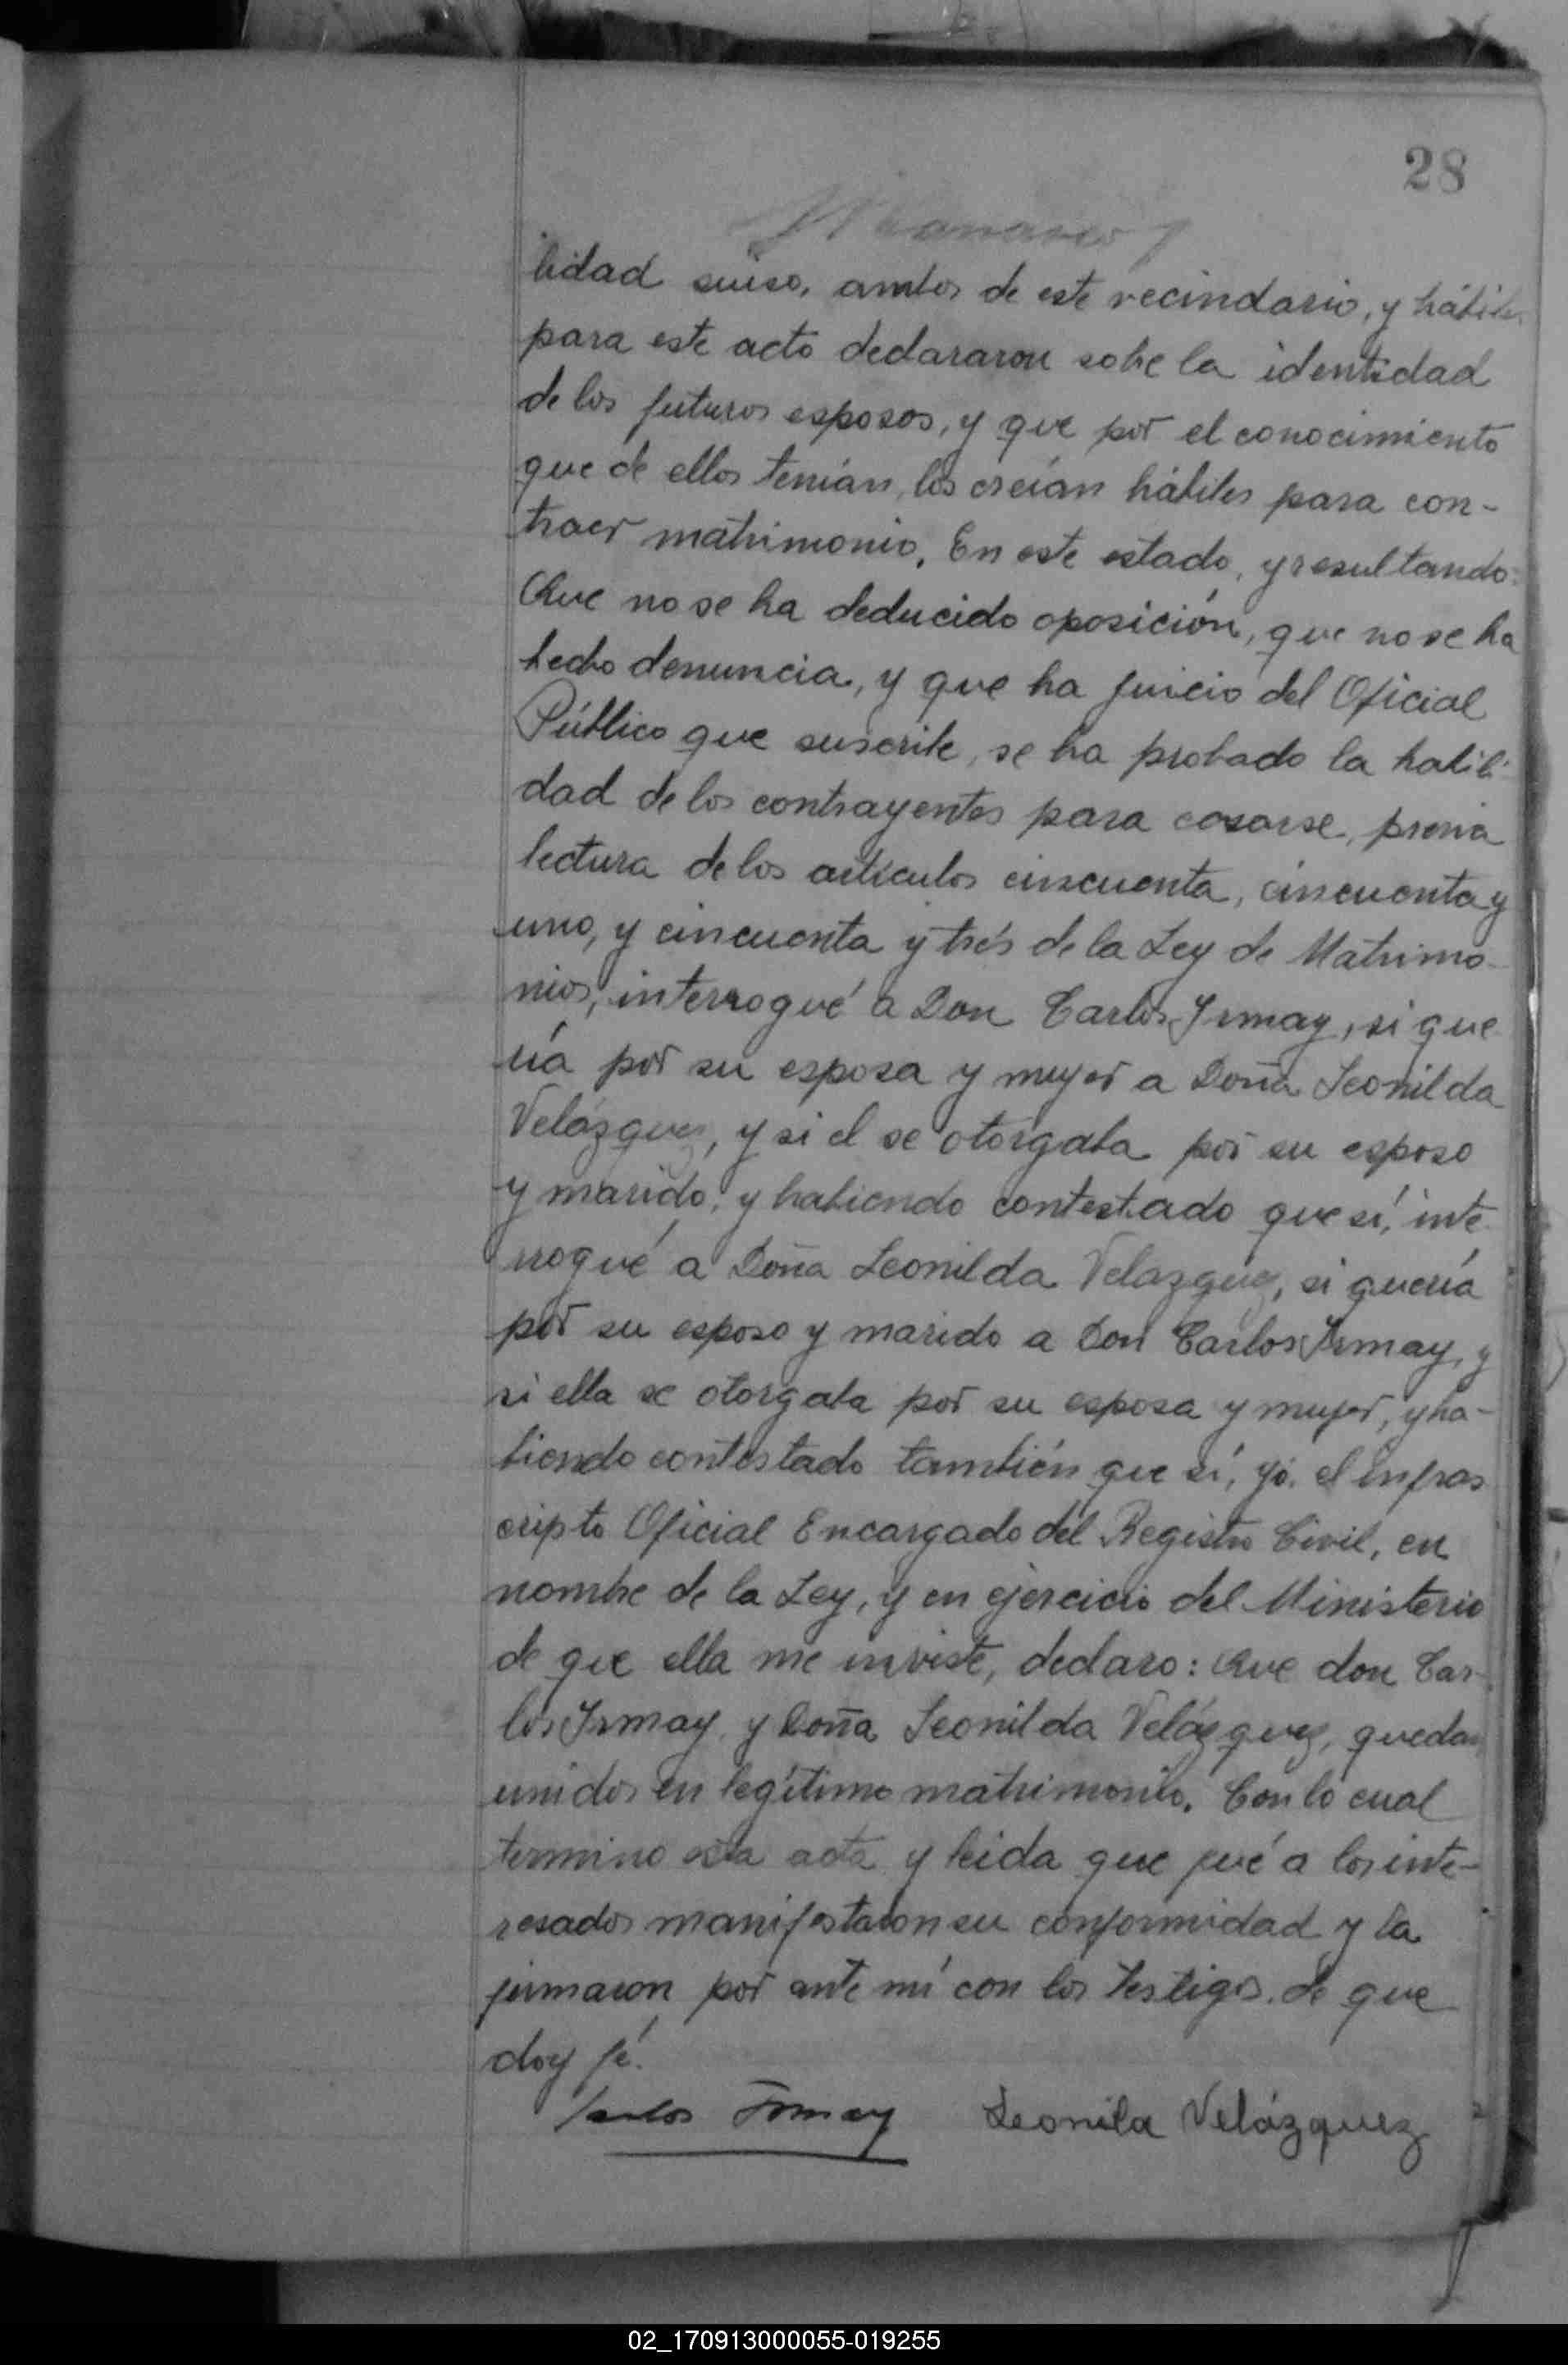 28
lidad suiso, ambos de este vecindario, y hábiles
para este acto declararon sobre la identidad
de los futuros esposos, y que por el conocimiento
que de ellos tenían, los creían hábiles para con-
traer matrimonio. En este estado, y resultando:
Que no se ha deducido oposición, que no se ha
hecho denuncia, y que ha juicio del Oficial
Público que suscribe, se ha probado la habili-
dad de los contrayentes para casarse, previa
lectura de los artículos cincuenta, cincuenta y
uno, y cincuenta y trés de la Ley de Matrimo-
nios, interrogué a Don Carlos Irmay, si que
ría por su esposa y mujer a Doña Leonilda
Velázquez, y si el se otorgaba por su esposo
y marido, y habiendo contestado que sí, inte
rrogué a Doña Leonilda Velazquez, si quería
por su esposo y marido a Don Carlos Irmay, y
si ella se otorgaba por su esposa y mujer, y ha-
biendo contestado también que sí, yó, el infras
cripto Oficial Encargado del Registro Civil, en
nombre de la Ley, y en ejercicio del Ministerio
de que ella me inviste, declaro: Que don Car-
los Irmay y Doña Leonilda Velázquez, quedan
unidos en legítimo matrimonio. Con lo cual
termino esta acta y leida que fué a los inte-
resados manifestaron su conformidad y la
firmaron por ante mí con los testigos, de que
doy fé.
Carlos Irmay Leonila Velázquez
02_170913000055-019255